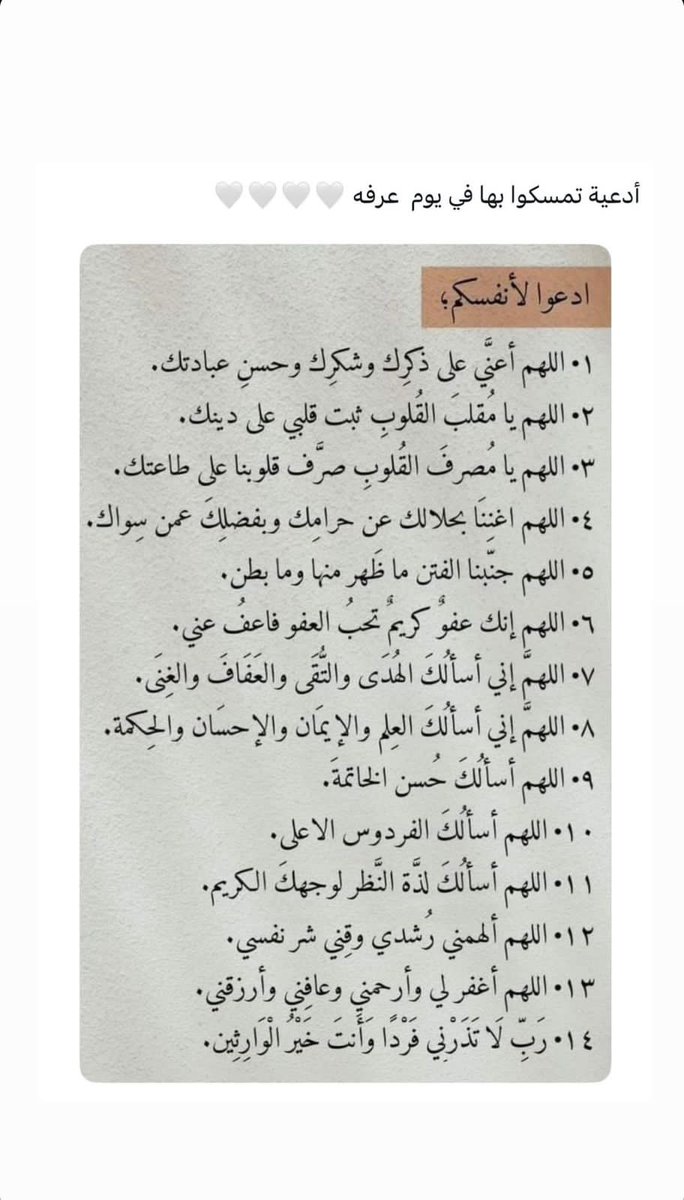 أدعية تمسكوا بها في يوم عرفه 🤍🤍🤍🤍
ادعوا لأنفسكم؛
١• اللهم أعنَّي على ذكرِك وشكرِك وحسنِ عبادتك.
٢• اللهم يا مُقلبَ القُلوبِ ثبت قلبي على دينك.
٣• اللهم يا مُصرفَ القُلوبِ صرَّف قلوبنا على طاعتك.
٤• اللهم اغنِنَا بحلالك عن حرامِك وبفضلِكَ عمن سِواك.
٥• اللهم جنّبنا الفتن ما ظَهر منها وما بطن.
٦• اللهم إنك عفوٌ كريمٌ تحبُ العفو فاعفُ عني.
٧• اللهمَّ إني أسألُكَ الهُدَى والتُّقَى والعَفَافَ والغِنَى.
٨• اللهمَّ إني أسألُكَ العِلم والإيمَان والإحسَان والحِكمة.
٩• اللهم أسألُكَ حُسن الخاتمةَ.
١٠• اللهم أسألُكَ الفردوس الاعلى.
١١• اللهم أسألُكَ لذَّة النَّظر لوجهكَ الكريم.
١٢• اللهم ألهمني رُشدي وقِني شر نفسي.
١٣• اللهم أغفر لي وأرحمني وعافِني وأرزقني.
١٤• رَبِّ لَا تَذَرْنِي فَرْدًا وَأَنتَ خَيْرُ الْوَارِثِين.